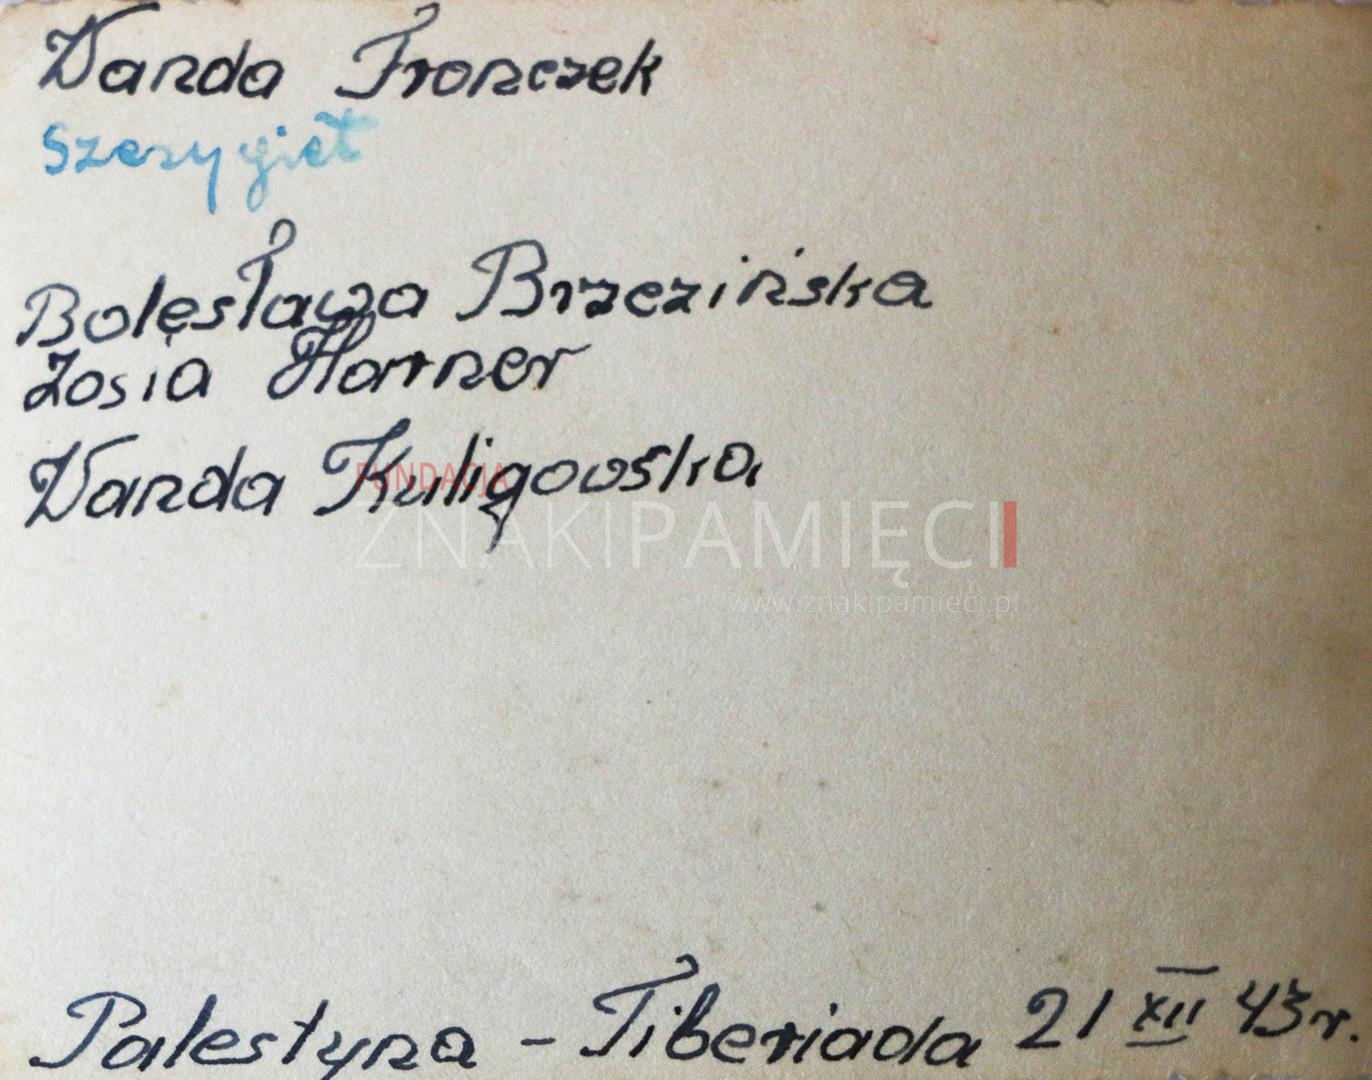 Wanda Fronczek
Szerygieł
Bolesława Brzezińska
Zosia Horner
Wanda Kuligowska
FUNDACJA
ZNAKIPAMIĘCI
www.znakipamieci.pl
Palestyna - Tiberiada 21 XII 43 r.